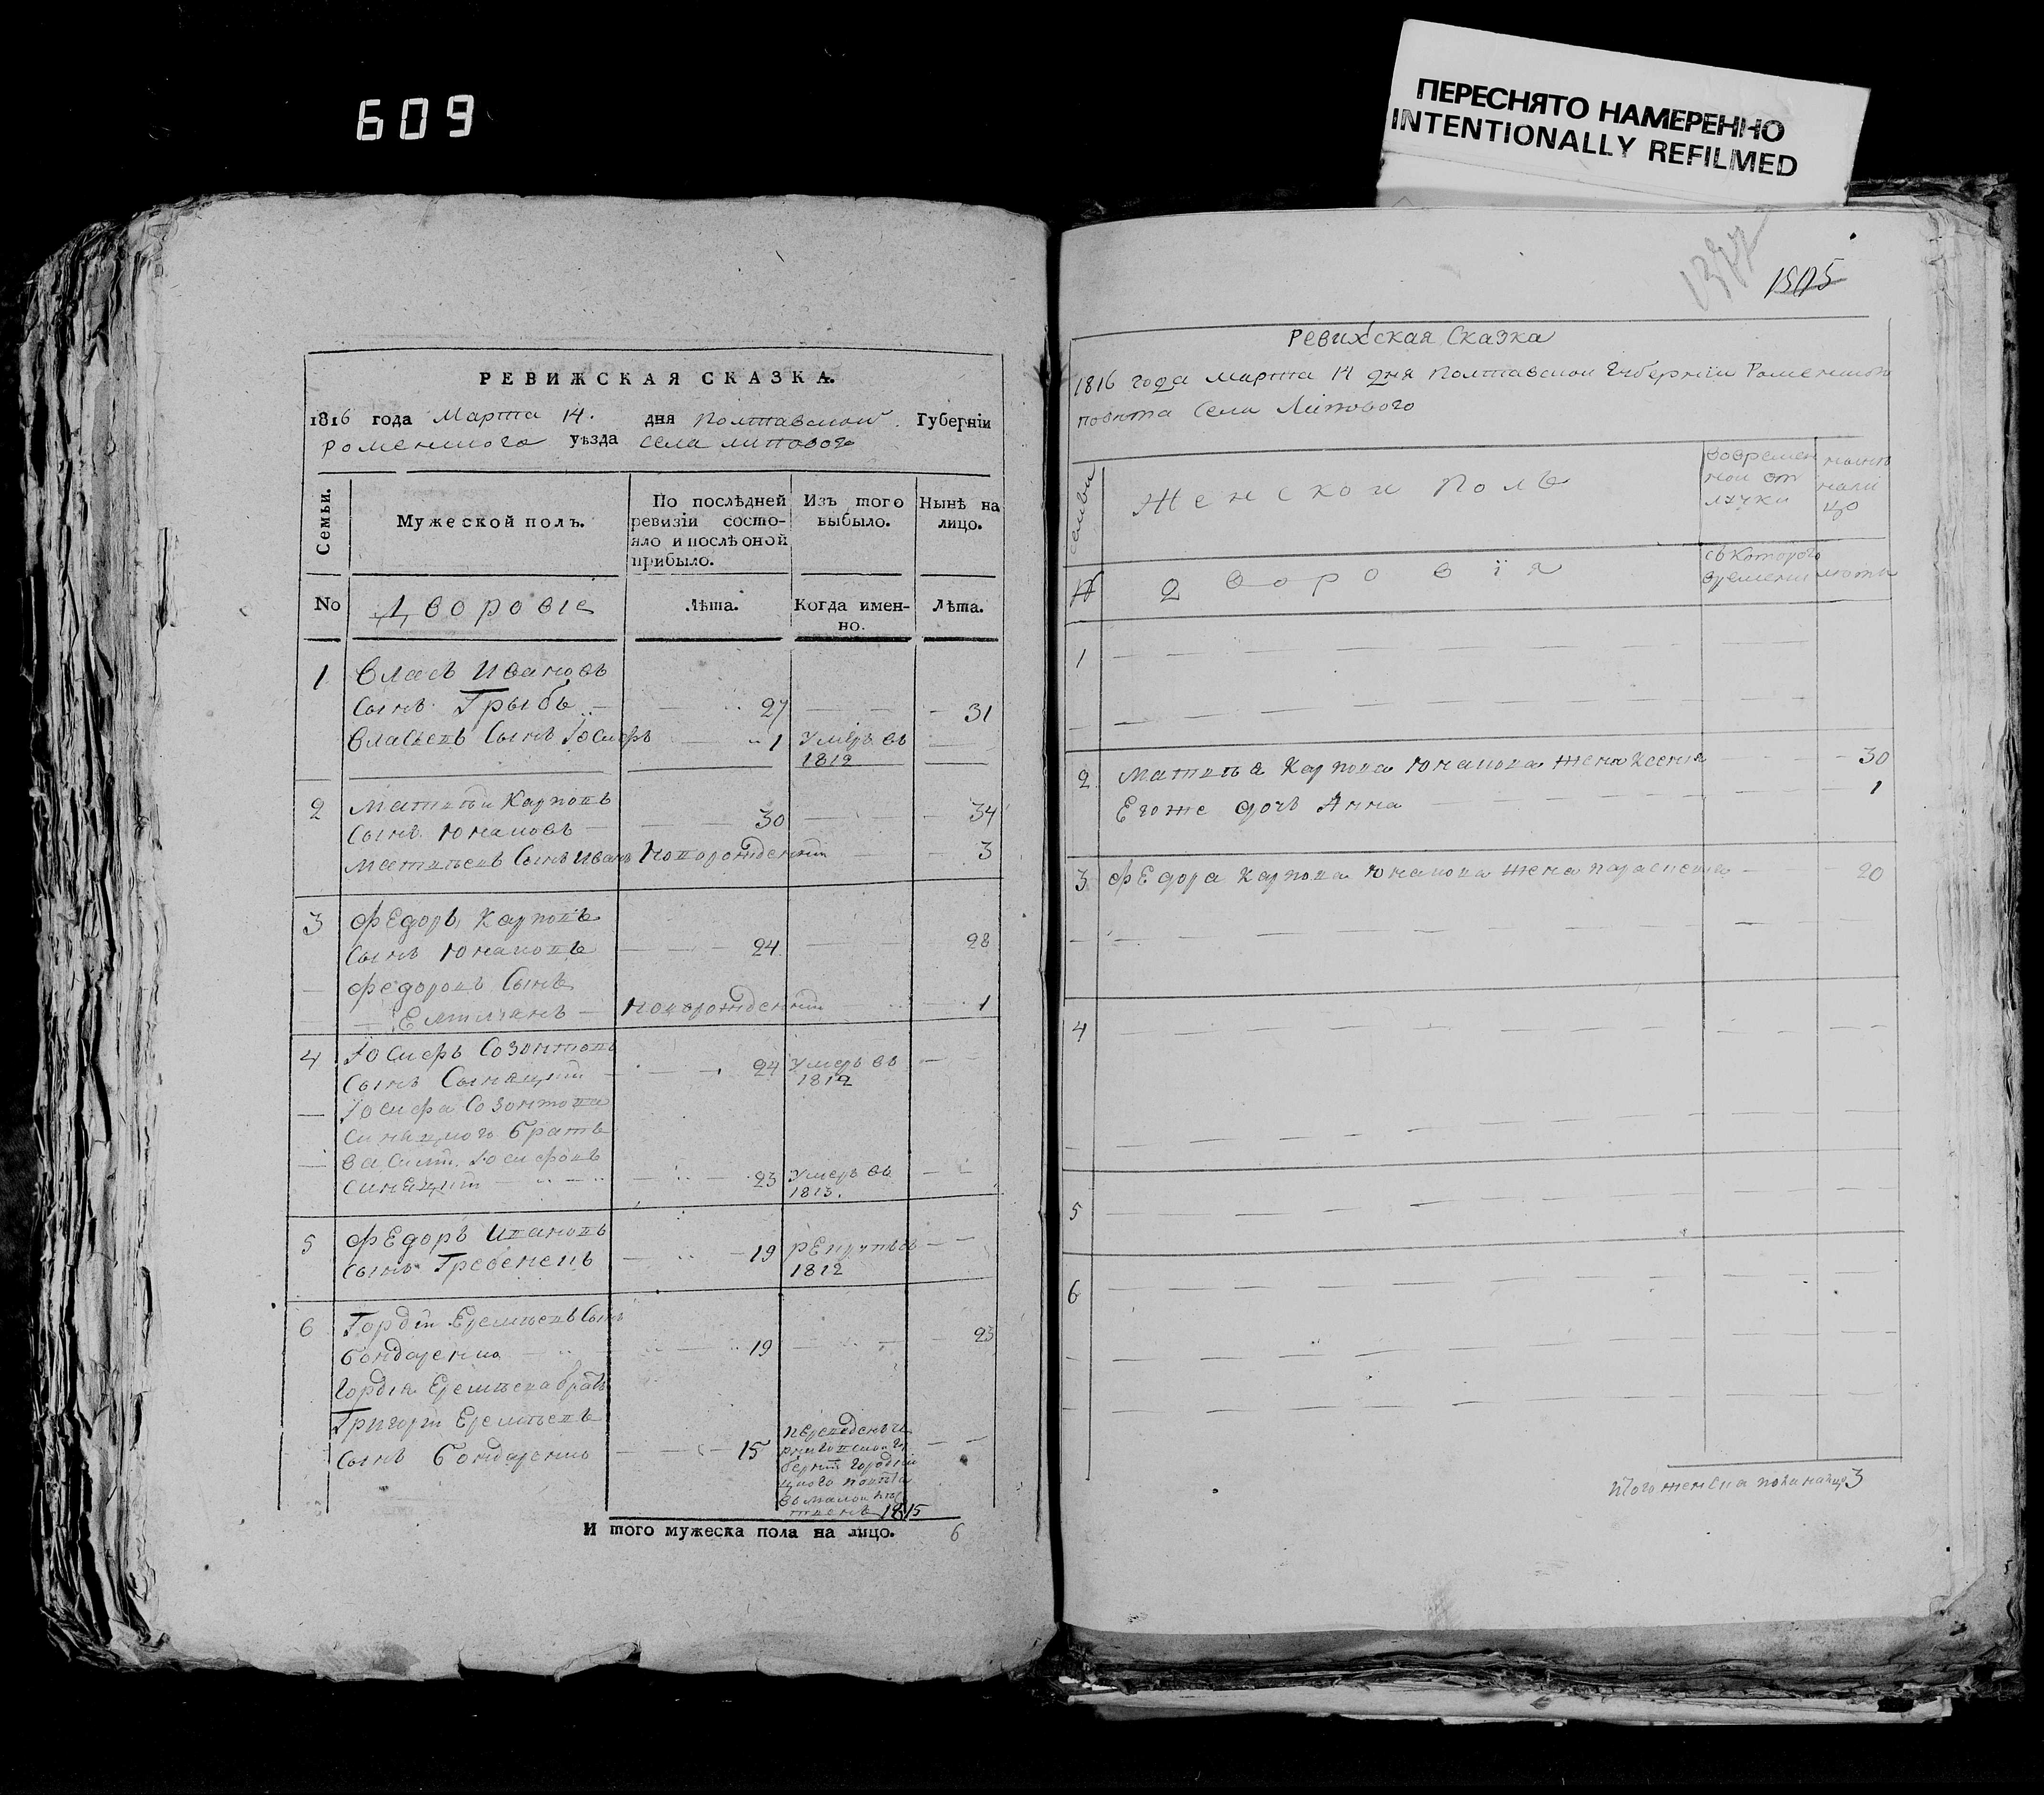 609
ПЕРЕСНЯТО НАМЕРЕННО
INTENTIONALLY REFILMED
РЕВИЖСКАЯ СКАЗКА.
1816 года Марта 14. дня Полтавской Губерніи
Роменского уѣзда села липового
Семьи.
Мужеской полъ.
По послѣдней ревизіи состо-
яло и послѣ оной
прибыло.
Изъ того
выбыло.
Нынѣ на
лицо.
No
Дворовіе
Лѣта.
Когда имен-
но.
Лѣта.
1 Власъ Ивановъ
сынъ Грыбъ 27 31
Власьевъ Сынъ Іосифъ 1 Умеръ въ
1812
2 Матвѣй Карповъ
сынъ Юнаковъ 30 34
Матвѣевъ Сынъ Иванъ Новорожденній 3
3 Федоръ Карповъ
сынъ Юнаковъ 24 28
Федоровъ Сынъ
Емилиянъ Новорожденній 1
4 Іосифъ Созонтовъ
Сынъ 24 Умеръ въ
1812
Іосифа Созонтова
братъ
Василій Іосифовъ
23 Умеръ въ
1813.
5 Федоръ Ивановъ
Сынъ Гребенецъ 19
1812
6 Гордій Еремѣевъ Сынъ
Бондаренко 19 23
Гордія Еремѣева братъ
Григорій Еремѣевъ
сынъ Бондаренко 15 Переведенъ
1815
И того мужеска пола на лицо. 6
1505
Ревихская Сказка
1816 года марта 14 дня Полтавской Губерніи Роменского
повѣта Села Липового
семьи
Женской Полъ
вовремен
ной от
лучки
нынѣ
нали
цо
№
Дворовія
съ Которого
времени
лѣта
1
2 Матвѣя Карпова Юнакова жена Ксенія 30
Егоже дочь Анна 1
3 Федора Карпова Юнакова жена параскева 20
4
5
6
Итого женска пола налицо 3